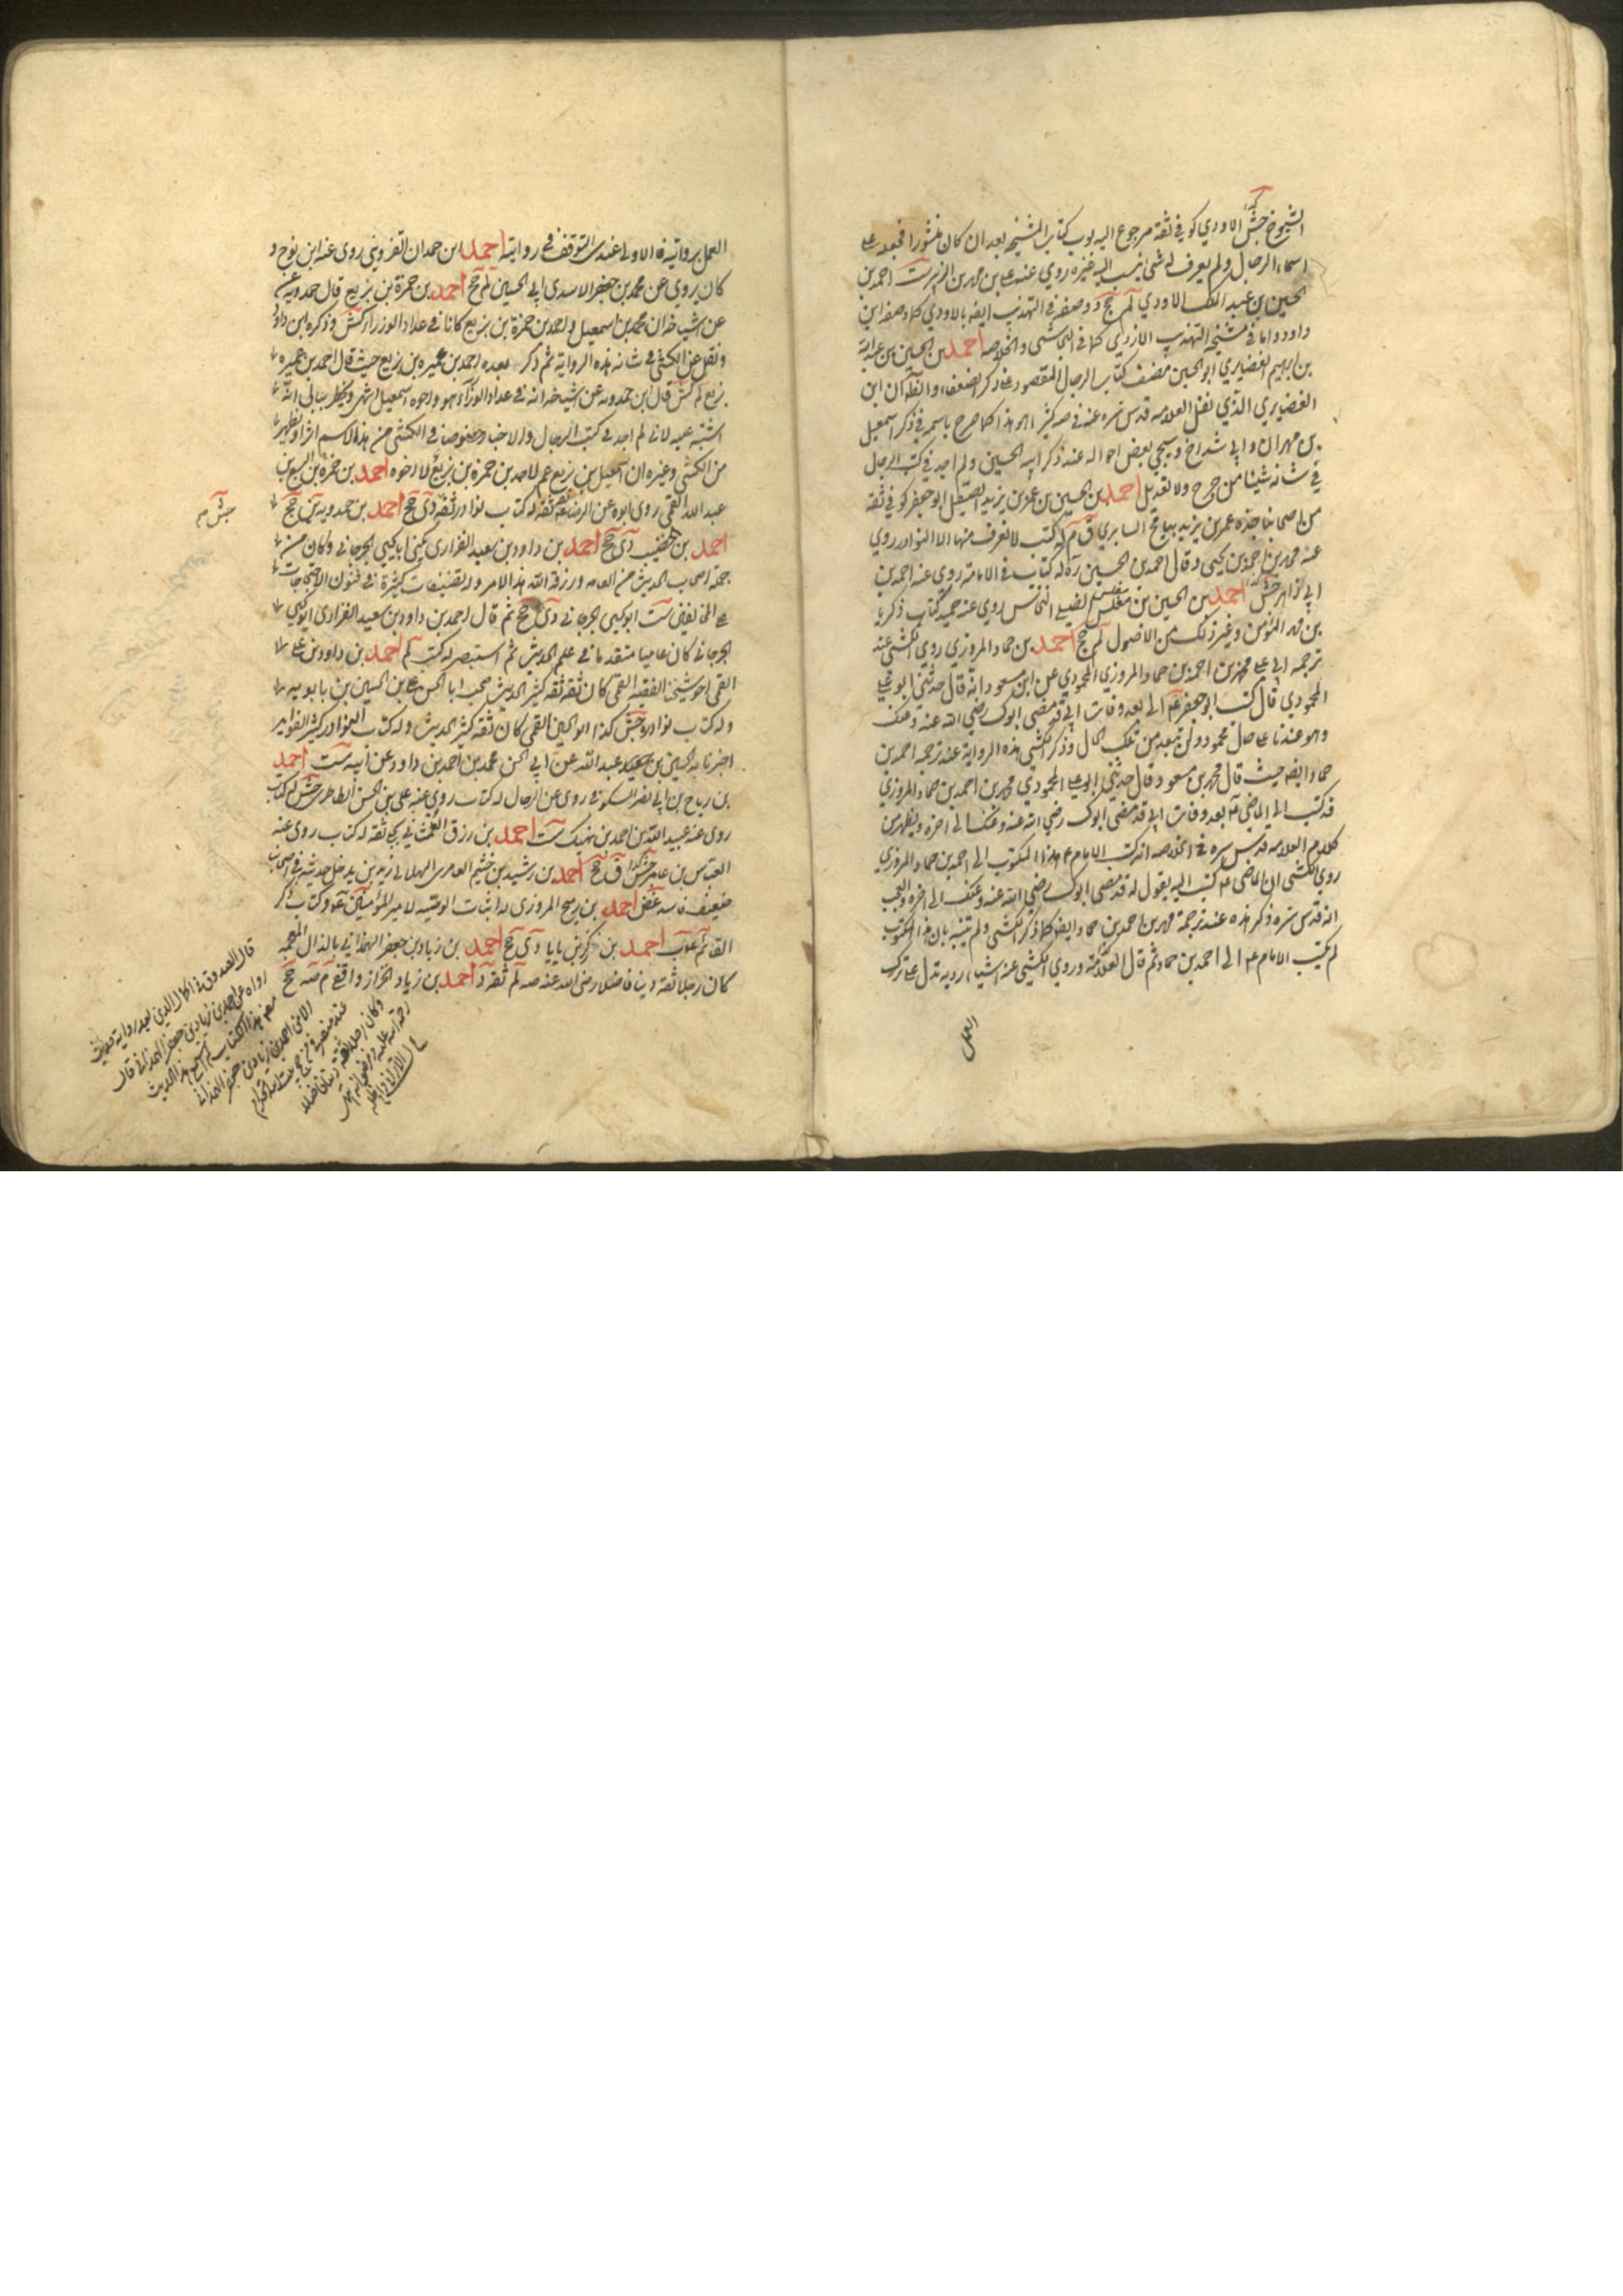 الشيوخ جش الاودي كوفي ثقة مرجوع اليه بوب كتاب المشيخة بعد ان كان منثورا فجعله على
اسماء الرجال ولم يعرف له شئ ينسب اليه غيره روى عنه علي بن محمد بن الزبير ست احمد بن
الحسين بن عبد الملك الاودي لم جخ د وصفه في التهذيب ايضه بالاودي كذا وصفه ابن
داود واما في مشيخة التهذيب الازدي كما في النجاشي والخلاصه احمد بن الحسين بن عبيد الله
بن ابراهيم الغضايري ابو الحسين مصنف كتاب الرجال المقصور على ذكر الضعفاء والظ ان ابن
الغضايري الذي نقل العلامه قدس سره عنه في صه كثيرا هو هذا كما صرح باسمه في ذكر اسمعيل
بن مهران وابي شداخ وسيجئ بعض احواله عند ذكر ابيه الحسين ولم اجد في كتب الرجال
في شانه شيئا من جرح ولا تعديل احمد بن الحسين بن عمر بن يزيد الصيقل ابو جعفر كوفي ثقة
من اصحابنا جده عمر بن يزيد بياع السابري ق م له كتب لا نعرف منها الا النوادر روى
عنه محمد بن احمد بن يحيى وقال احمد بن الحسين ره له كتاب في الامامة روى عنه احمد بن
ابي زاهر جش احمد بن الحسين بن مفلس الضبي النخاس روى عنه حميد كتاب زكريا
بن محمد المؤمن وغير ذلك من الاصول لم جخ احمد بن حماد المروزي روى الكشي عند
ترجمه ابي علي محمد بن احمد بن حماد المروزي المحمودي عن ابن مسعود انه قال حدثني ابو علي
المحمودي قال كتب ابو جعفر عم الي بعد وفات ابي قد مضى ابوك رضي الله عنه وعنك
وهو عندنا على حال محمود ولن تبعد من تلك الحال وذكر الكشي هذه الرواية عند ترجمه احمد بن
حماد ايضه حيث قال محمد بن مسعود قال حدثني ابو علي المحمودي محمد بن احمد بن حماد المروزي
قد كتب الي الماضي عم بعد وفات ابي قد مضى ابوك رضي الله عنه وعنك الى اخره ويظهر من
كلام العلامه قدس سره في الخلاصه انه كتب الامام عم هذا المكتوب الى احمد بن حماد المروزي
روى الكشي ان الماضي عم كتب اليه يقول له قد مضى ابوك رضي الله عنه وعنك الى اخره والعجب
انه قدس سره ذكر هذه عند ترجمة محمد بن احمد بن حماد ايضه كما ذكر الكشي ولم يتنبه بان هذا المكتوب
لم يكتب الامام عم الى احمد بن حماد ثم قال العلامة وروى الكشي عنه اشياء ردية تدل على ترك
العمل
العمل بروايته فالاولى عندي التوقف في روايته احمد ابن حمدان القزويني روى عنه ابن نوح و
كان يروي عن محمد بن جعفر الاسدي ابي الحسين لم جخ احمد بن حمزة بن بزيع قال حمدويه عن
عن اشياخه ان محمد بن اسمعيل واحمد بن حمزة بن بزيع كانا في عداد الوزراء كش وذكره ابن داود
ونقل عن الكشي في شانه هذه الرواية ثم ذكر بعده احمد بن عميره بن بزيع حيث قال احمد بن عميره
بزيع لم كش قال ابن حمدويه عن شيخه انه في عداد الوزراء هو واخوه اسمعيل انتهى ويخطر ببالي انه
اشتبه عليه لاني لم اجد في كتب الرجال والاخبار خصوصا في الكشي من هذا الاسم اثرا ويظهر
من الكشي وغيره ان اسمعيل بن بزيع عم لاحمد بن حمزة بن بزيع لا اخوه احمد بن حمزة بن اليسع بن
عبد الله القمي روى ابوه عن الرضا ثقة ثقة له كتاب نوادر ثقة دى جخ احمد بن حمدويه ين جخ
جش صه
احمد بن خضيب دى جخ احمد بن داود بن سعيد الفزاري يكنى ابا يحيى الجرجاني وكان من
جملة اصحاب الحديث من العامه ورزقه الله هذا الامر وله تصنيفات كثيرة في فنون الاحتجاجات
على المخالفين ست ابو يحيى الجرجاني دى جخ ثم قال احمد بن داود بن سعيد الفزاري ابو يحيى
الجرجاني كان عاميا متقدما في علم الحديث ثم استبصر له كتب لم احمد بن داود بن علي
القمي اخو شيخنا الفقيه القمي كان ثقة ثقة كثير الحديث صحب ابا الحسن علي بن الحسين بن بابويه
وله كتاب نوادر جش كذا ابو الحسين القمي كان ثقة كثير الحديث وله كتاب النوادر كثير الفوايد
اخبرنا به الحسين بن عبيد الله عن ابي الحسن محمد بن احمد بن داود عن ابيه ست احمد
بن رباح بن ابي نصر السكوني روى عن الرجال له كتاب روى عنه علي بن الحسن الطاطري جش له كتاب
روى عنه عبيد الله بن احمد بن نهيك ست احمد بن رزق الغمشاني بجلي ثقة له كتاب روى عنه
العباس بن عامر جش ق جخ احمد بن رشيد بن خثيم العامري الهلالي زيدي يدخل حديثه في اصحابنا
ضعيف فاسد غض احمد بن رميح المروزي له اثبات الوصية لامير المؤمنين عم وكتاب ذكر
القائم عم ب احمد بن زكريا بن بابا دى جخ احمد بن زياد بن جعفر الهمداني بالدال المهملة
كان رجلا ثقة دينا فاضلا رضى الله عنه صه لم ثقة د احمد بن زياد الخزاز واقفي م صه جخ
قال الصدوق في اكمال الدين بعد رواية حديث
رواه عن احمد بن زياد بن جعفر الهمداني قال
مصنف هذا الكتاب لم اسمع هذا الحديث
الا من احمد بن زياد بن جعفر الهمداني
عند منصرفي من حج بيت الله الحرام
وكان رجلا ثقة دينا فاضلا
رحمة الله عليه ورضوانه انتهى